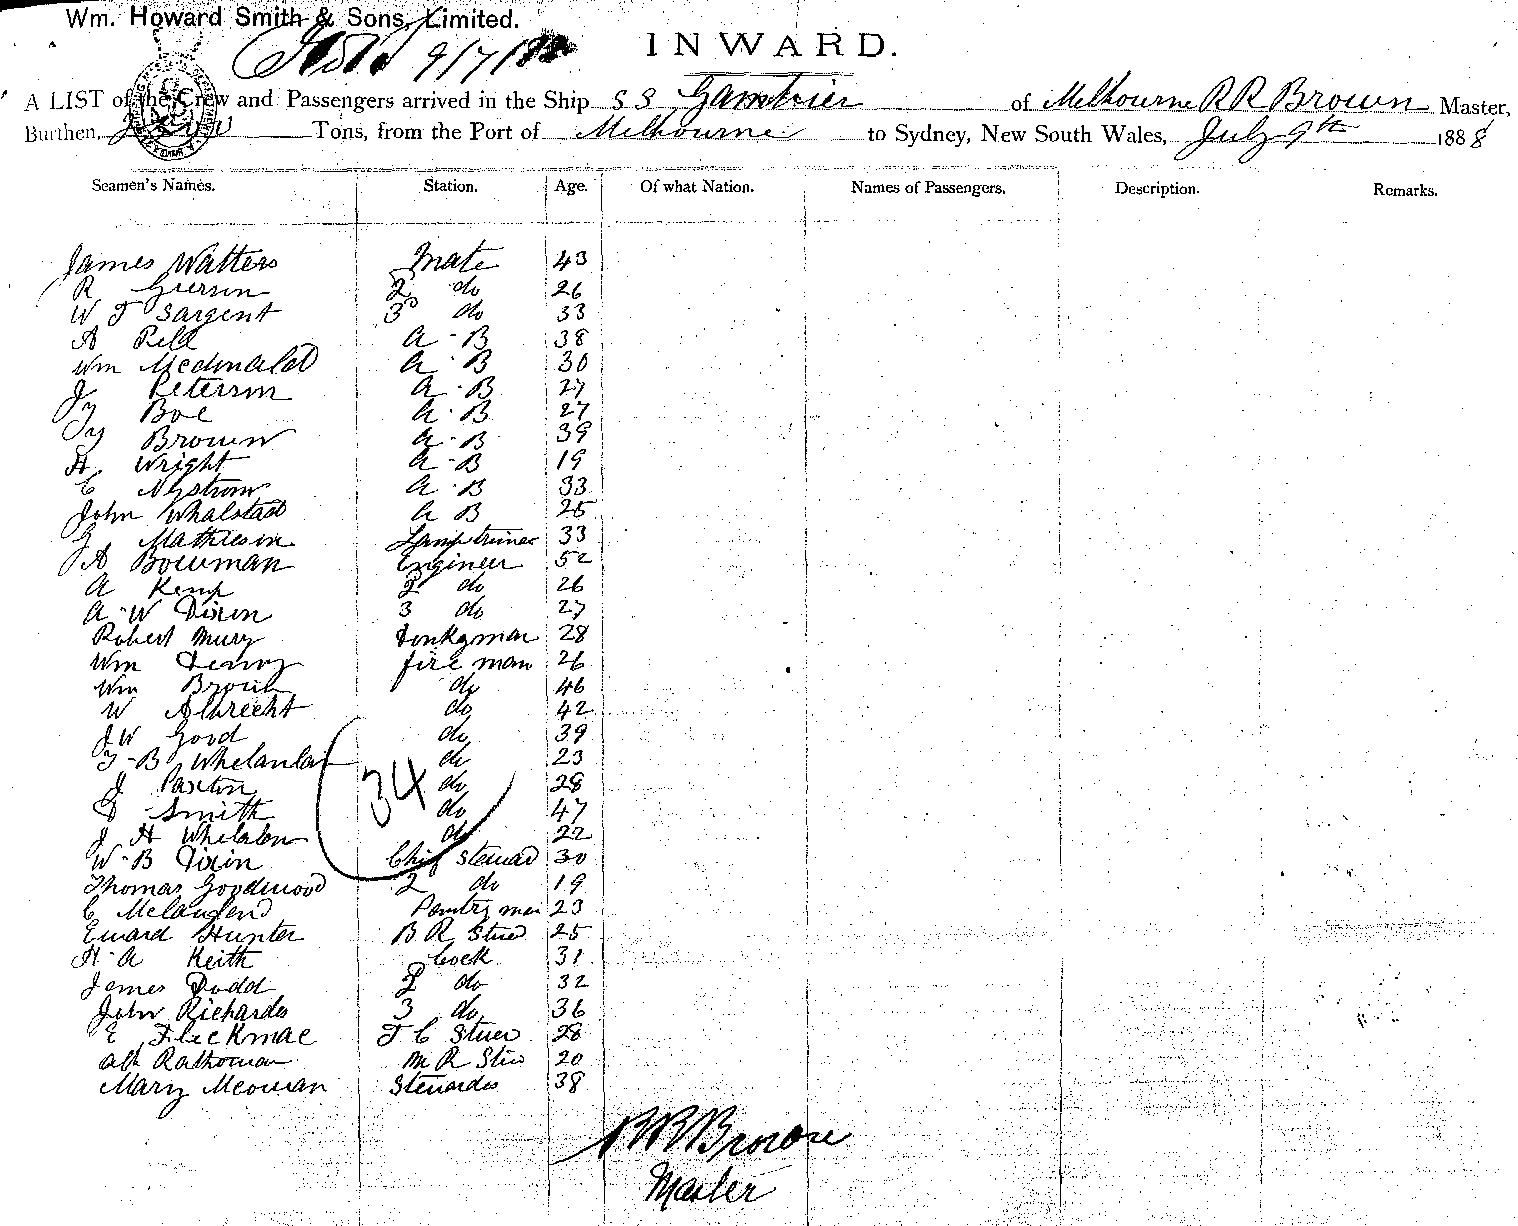 Wm. Howard Smith & Sons, Limited.
9/7/88
INWARD.
A LIST of the Crew and Passengers arrived in the Ship SS Gambier of Melbourne R R Brown Master,
Burthen, Tons, from the Port of Melbourne to Sydney, New South Wales, July 9th 1888
Seamen's Names. Station. Age. Of what Nation. Names of Passengers. Description. Remarks.
James Watters Mate 43
R Grierson 2 do 26
W T Sargent 3 do 33
A Pell A-B 38
Wm Mcdonald A B 30
J Peterson A-B 27
Boe A-B 27
Brown A-B 39
H Wright A-B 19
C Nystrom A-B 33
John Whalstad A B 25
G Mathieson Lamptrimer 33
J A Bowman Engineer 52
A Kemp 2 do 26
A-W Dixon 3 do 27
Robert Mury Donkyman 28
Wm Denny fire man 26
Wm Brown do 46
W Albrecht do 42
J W Good do 39
T-B Whelan do 23
J Paxton do 28
34
D Smith do 47
J H Whelan do 22
W-B Dixon Chif Steward 30
Thomas Goodwood 2 do 19
C Pantry man 23
Edward Hunter B R Stwd 25
H-A Keith Cook 31
James Dodd 2 do 32
John Richards 3 do 36
E Fleckmae F C Stwer 28
Rathouman M R Stw 20
Mary Mcowan Stewardes 38
R R Brown
Master